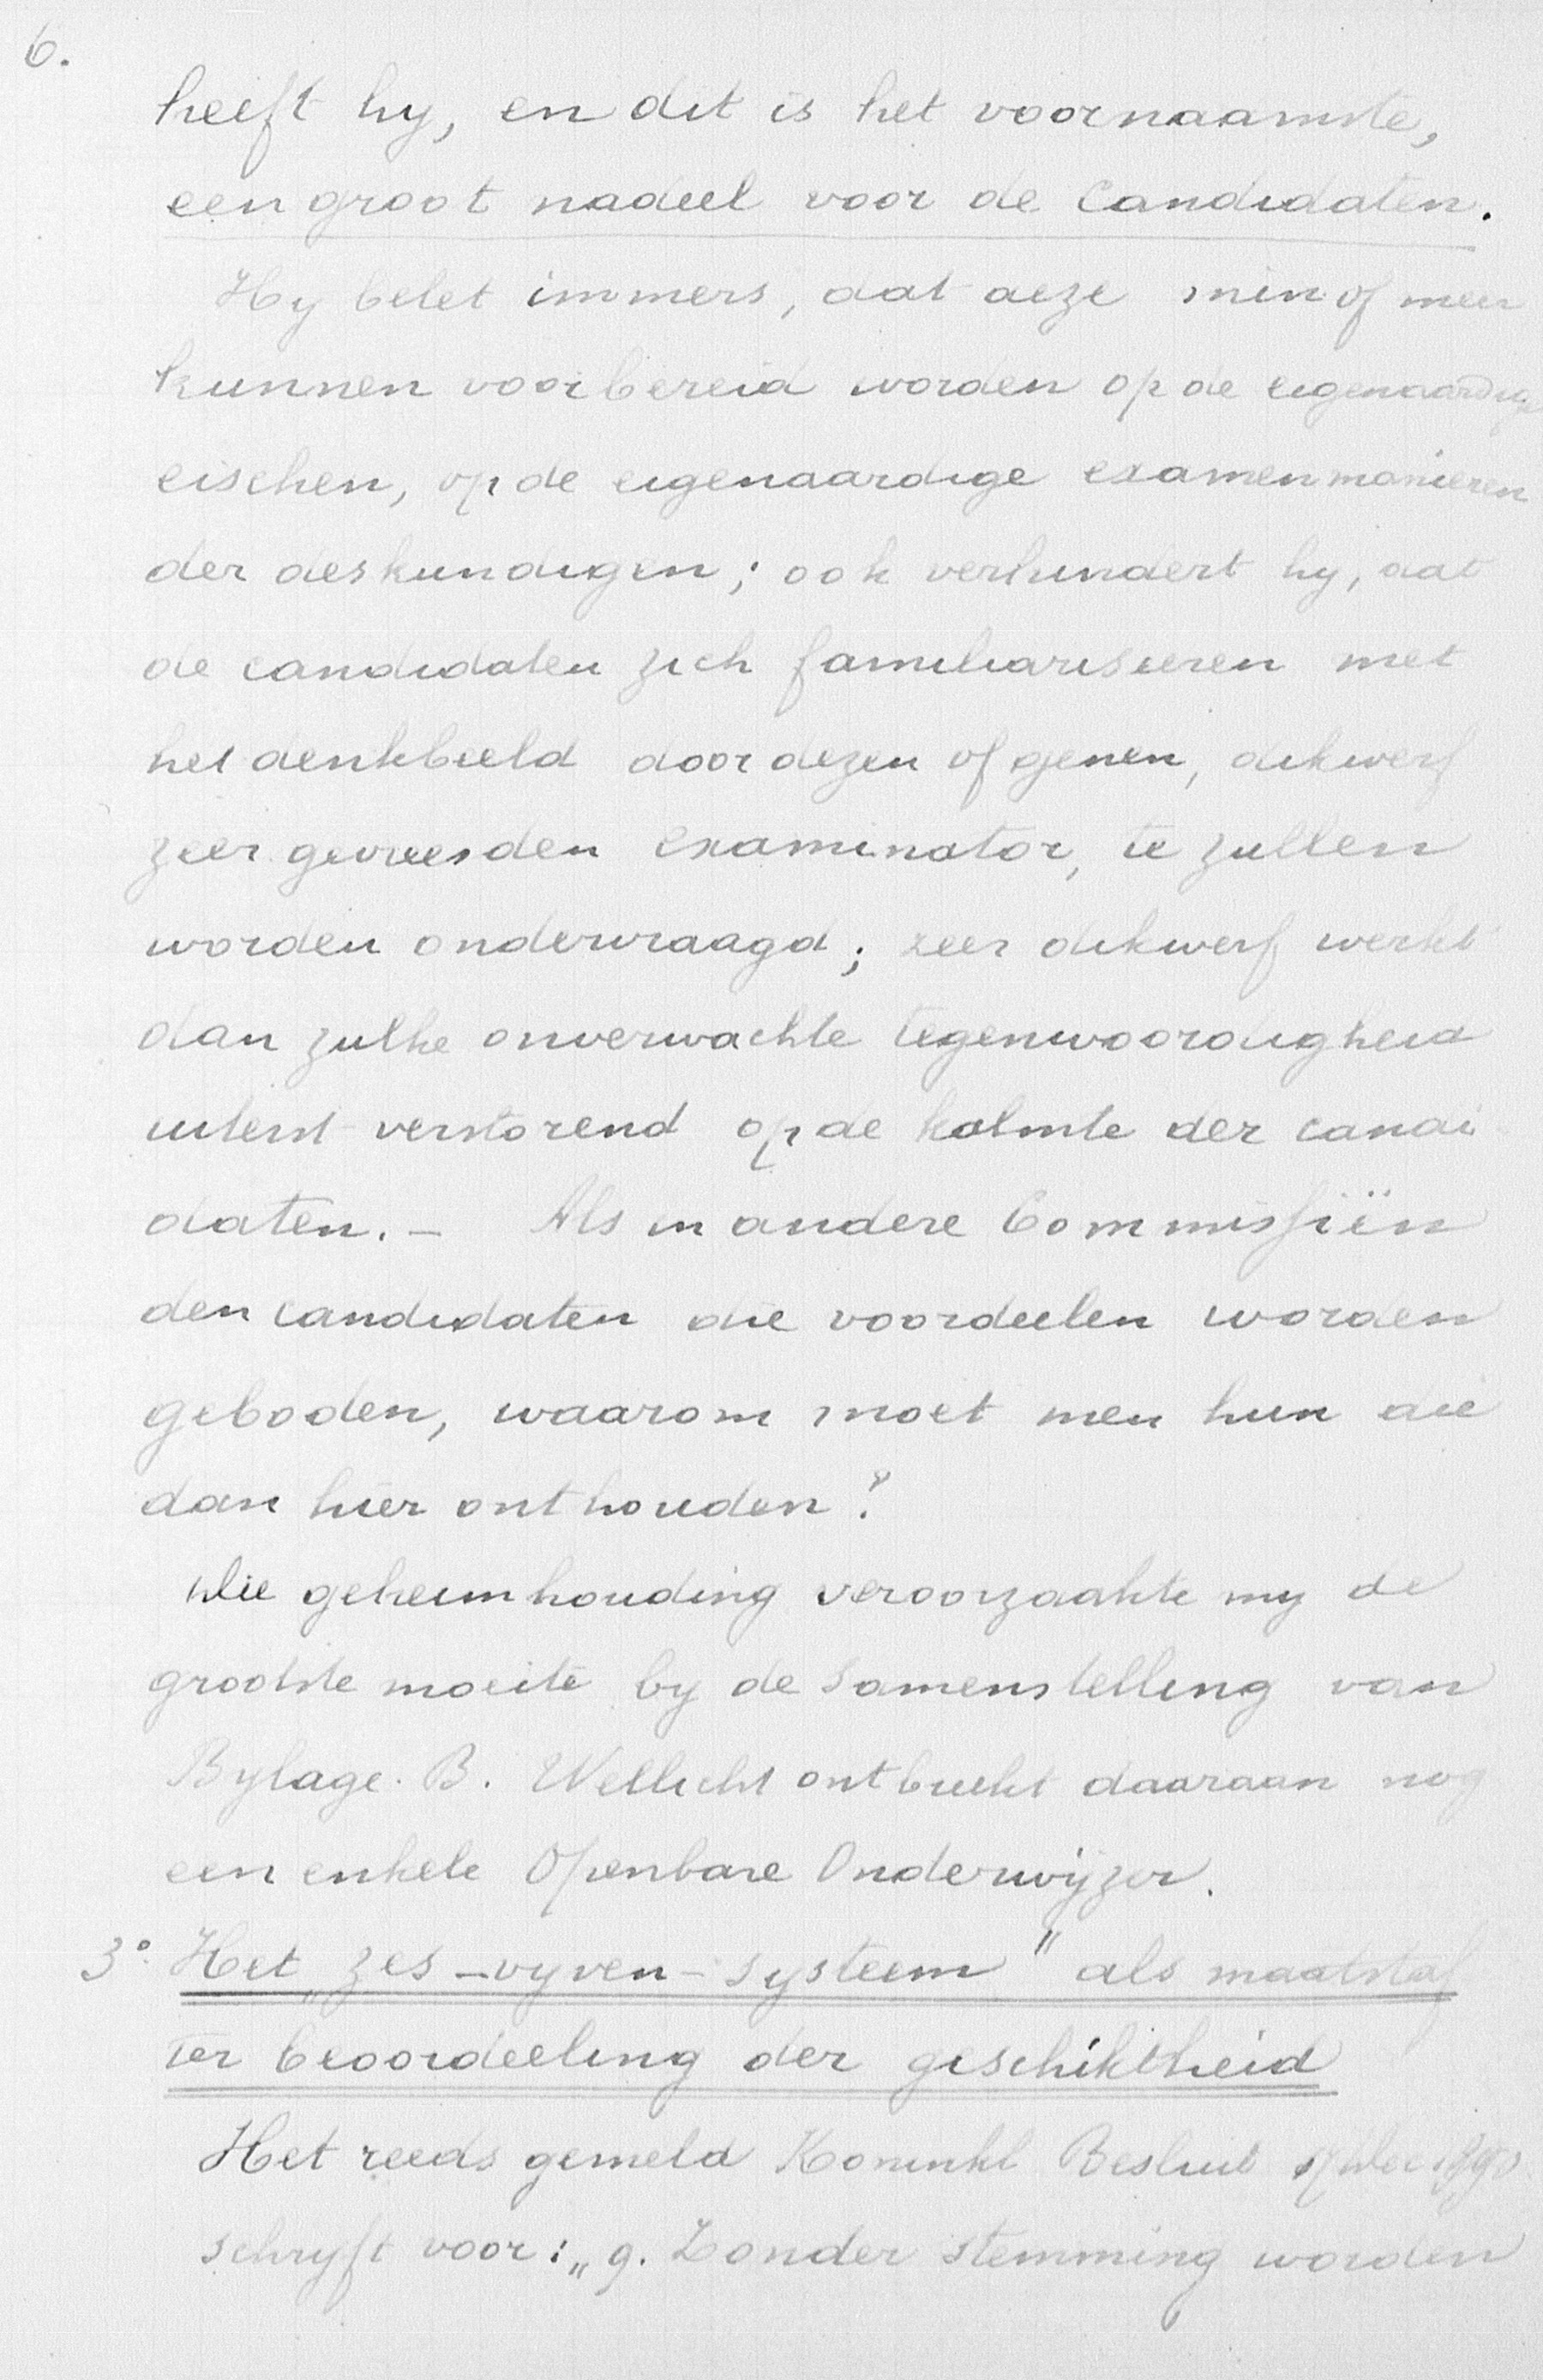 6.
heeft hy, en dit is het voornaamste,
een groot nadeel voor de Candidaten.
Hy belet immers, dat deze min of meer
kunnen voorbereid worden op de eigenaardige
eischen, op de eigenaardige examenmanieren
der deskundigen; ook verhindert hy, dat
de candidaten zich familiariseeren met
het denkbeeld door dezen of genen, dikwerf
zeer gevreesden examinator, te zullen
worden ondervraagd; zeer dikwerf werkt
dan zulke onverwachte tegenwoordigheid
uiterst verstorend op de kalmte der candi
daten. – Als in andere Commissiën
den candidaten die voordeelen worden
geboden, waarom moet men hun die
dan hier onthouden?
Die geheimhouding veroorzaakte my de
grootste moeite by de samenstelling van
Bylage B. Wellicht ontbreekt daaraan nog
een enkele Openbare Onderwijzer.
3° Het „zes-vyven-systeem" als maatstaf
ter beoordeeling der geschiktheid
Het reeds gemeld Koninkl Besluit Dec
schryft voor: „g. Zonder stemming worden